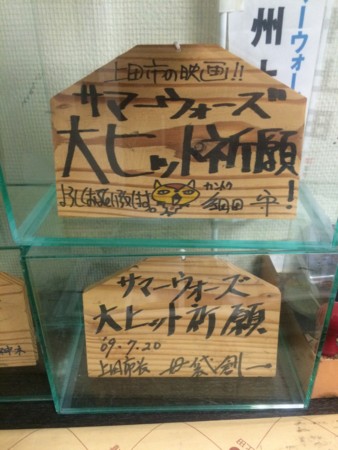 ーウォー
州上
上田市の映画!!
サマーウォーズ
大ヒット祈願!
よろしくお願い致します
カントク
細田 守
サマーウォーズ
大ヒット祈願
'09.7.20
上田市長 母袋創一